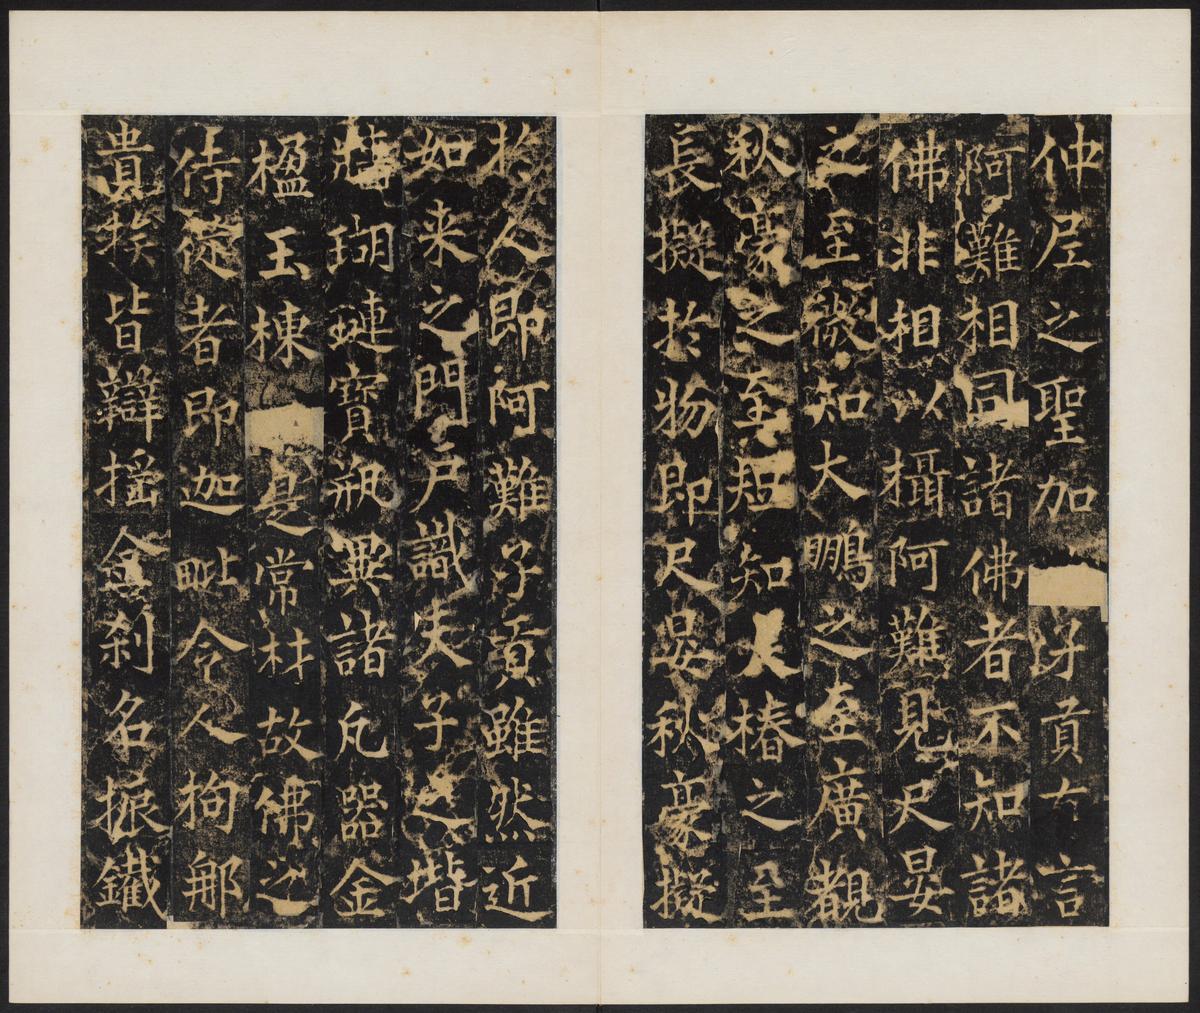 仲尼之聖加 㝵貢有言
阿難相同諸佛者不知諸
佛非相以攝阿難見尺晏
之至微知大鵬之至廣觀
秋豪之至短知大椿之至
長擬於物即尺晏秋豪擬
於人即阿難子貢雖然近
如来之門戶識夫子之堦
牆瑚璉寶瓶異諸凡器金
楹玉棟 是常材故佛之
侍從者即迦毗令人拘郍
貴族皆辯揺金刹名振鐵